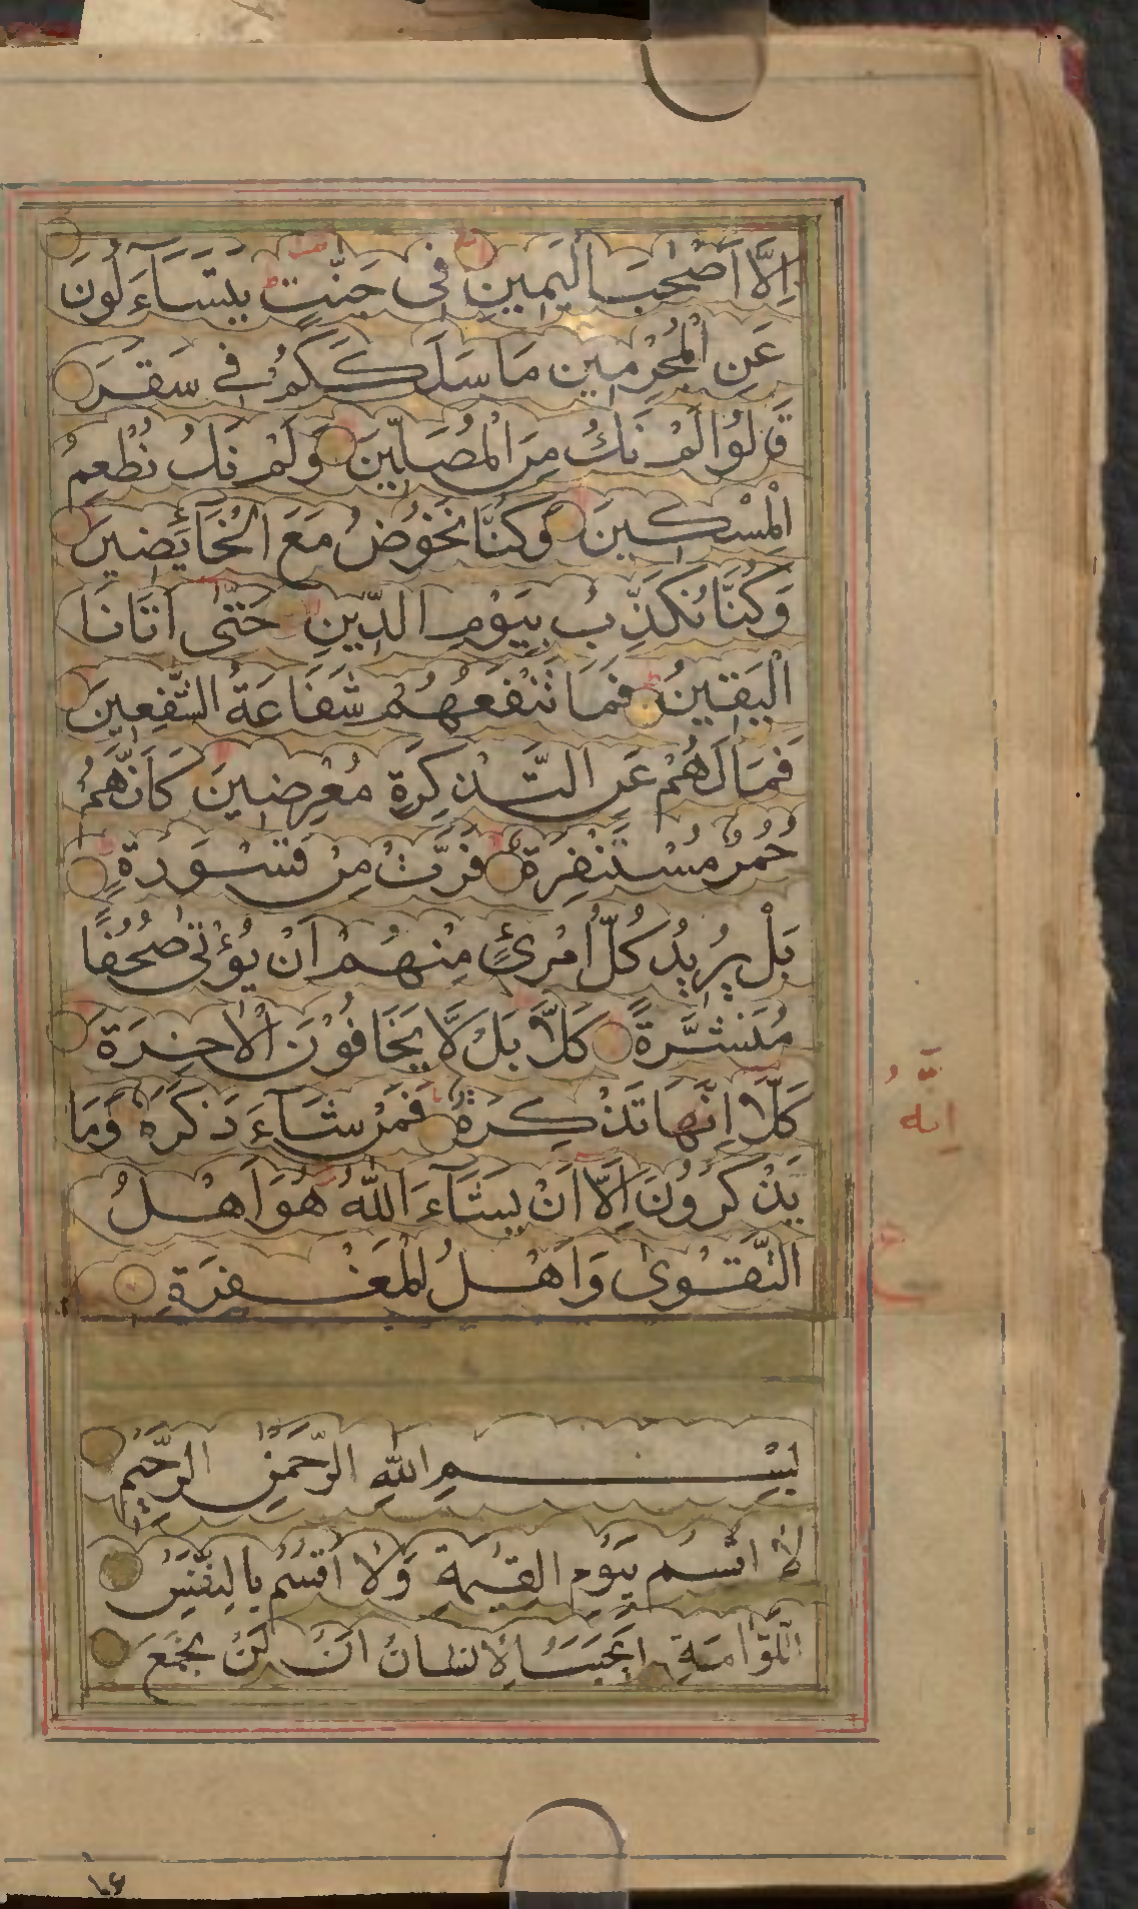 اِلَّا اَصْحٰبَ الْيَمِينِ فِى جَنّٰتٍ يَتَسَآءَلُونَ
عَنِ الْمُجْرِمِينَ مَا سَلَكَكُمْ فِى سَقَرَ
قَالُوا لَمْ نَكُ مِنَ الْمُصَلِّينَ وَلَمْ نَكُ نُطْعِمُ
الْمِسْكِينَ وَكُنَّا نَخُوْضُ مَعَ الْخَآئِضِينَ
وَكُنَّا نُكَذِّبُ بِيَوْمِ الدِّينِ حَتّٰى اَتَانَا
الْيَقِينُ فَمَا تَنْفَعُهُمْ شَفَاعَةُ الشّٰفِعِينَ
فَمَا لَهُمْ عَنِ التَّذْكِرَةِ مُعْرِضِينَ كَاَنَّهُمْ
حُمُرٌ مُسْتَنْفِرَةٌ فَرَّتْ مِنْ قَسْوَرَةٍ
بَلْ يُرِيدُ كُلُّ امْرِئٍ مِنْهُمْ اَنْ يُؤْتٰى صُحُفًا
مُنَشَّرَةً كَلَّا بَلْ لَّا يَخَافُوْنَ الْاٰخِرَةَ
كَلَّا اِنَّهَا تَذْكِرَةٌ فَمَنْ شَآءَ ذَكَرَهُ وَمَا
يَذْكُرُونَ اِلَّا اَنْ يَشَآءَ اللّٰهُ هُوَ اَهْلُ
التَّقْوٰى وَاَهْلُ الْمَغْفِرَةِ
بِسْمِ اللّٰهِ الرَّحْمٰنِ الرَّحِيْمِ
لَا اُقْسِمُ بِيَوْمِ الْقِيٰمَةِ وَلَا اُقْسِمُ بِالنَّفْسِ
اللَّوَّامَةِ اَيَحْسَبُ الْاِنْسَانُ اَنْ لَنْ نَجْمَعَ